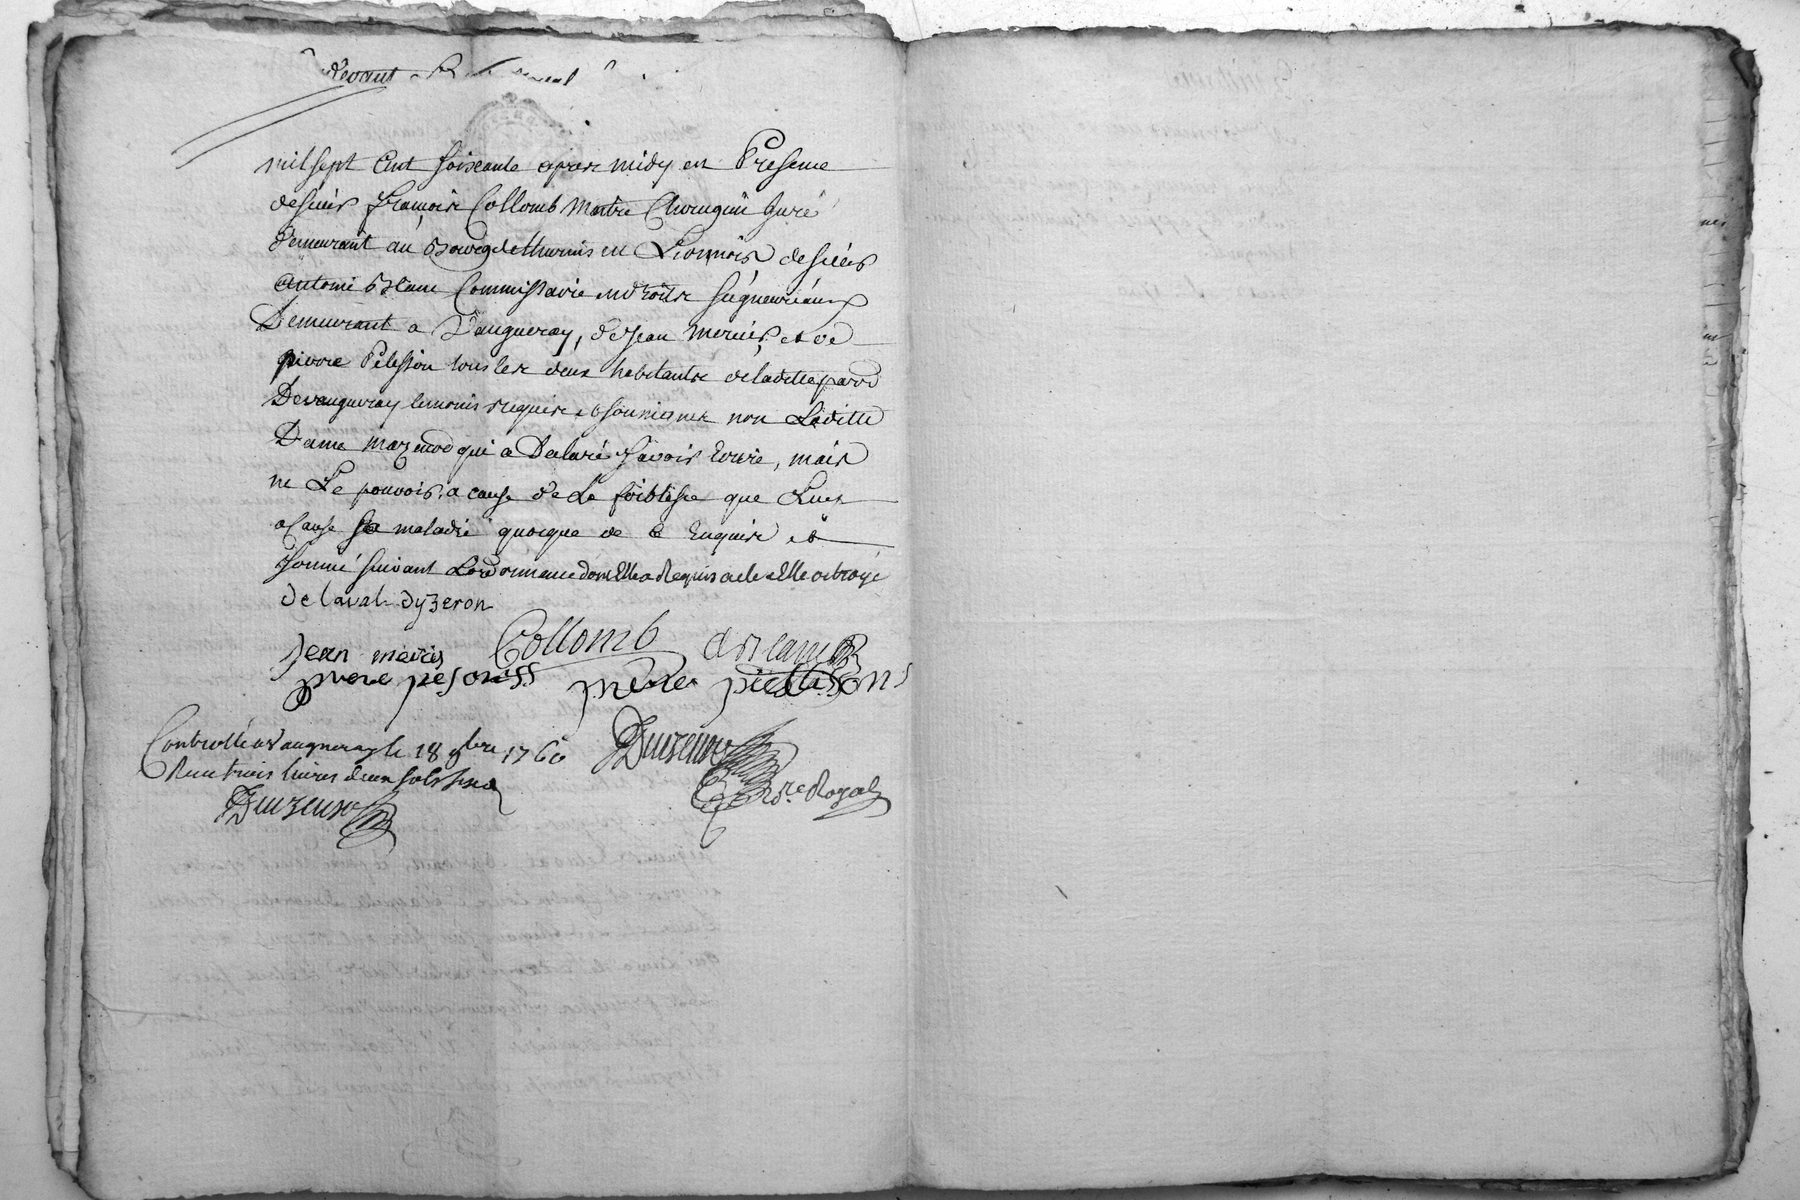 devant
mil sept Cent soixante apres midy en Presence
de sieur François Collomb Maitre Chirurgien Juré
demeurant au Bourg de thurins en Lionnois de sieur
Antoine Blanc Commissaire en droits seigneuriaux
Demeurant a Vaugneray, de Jean mercier et de
pierre Pelisson tous les deux habitants de laditte parr
De vaugneray temoins requis et sousignes non Laditte
Dame mazenod qui a Declaré sçavoir Ecrire, mais
ne Le pouvoir a cause de La foiblesse que Luy
a Cause sa maladie quoique de ce Enquise et
sommé suivant Lordonnance dont Elle a Requis acte a Elle octroyé
De laval dyzeron
Jean mercier Collomb A Blanc
pierre pelisson
Controllé a Vaugneray le 18 9bre 1760
Reçu trois livres deux sols
Nre Royal